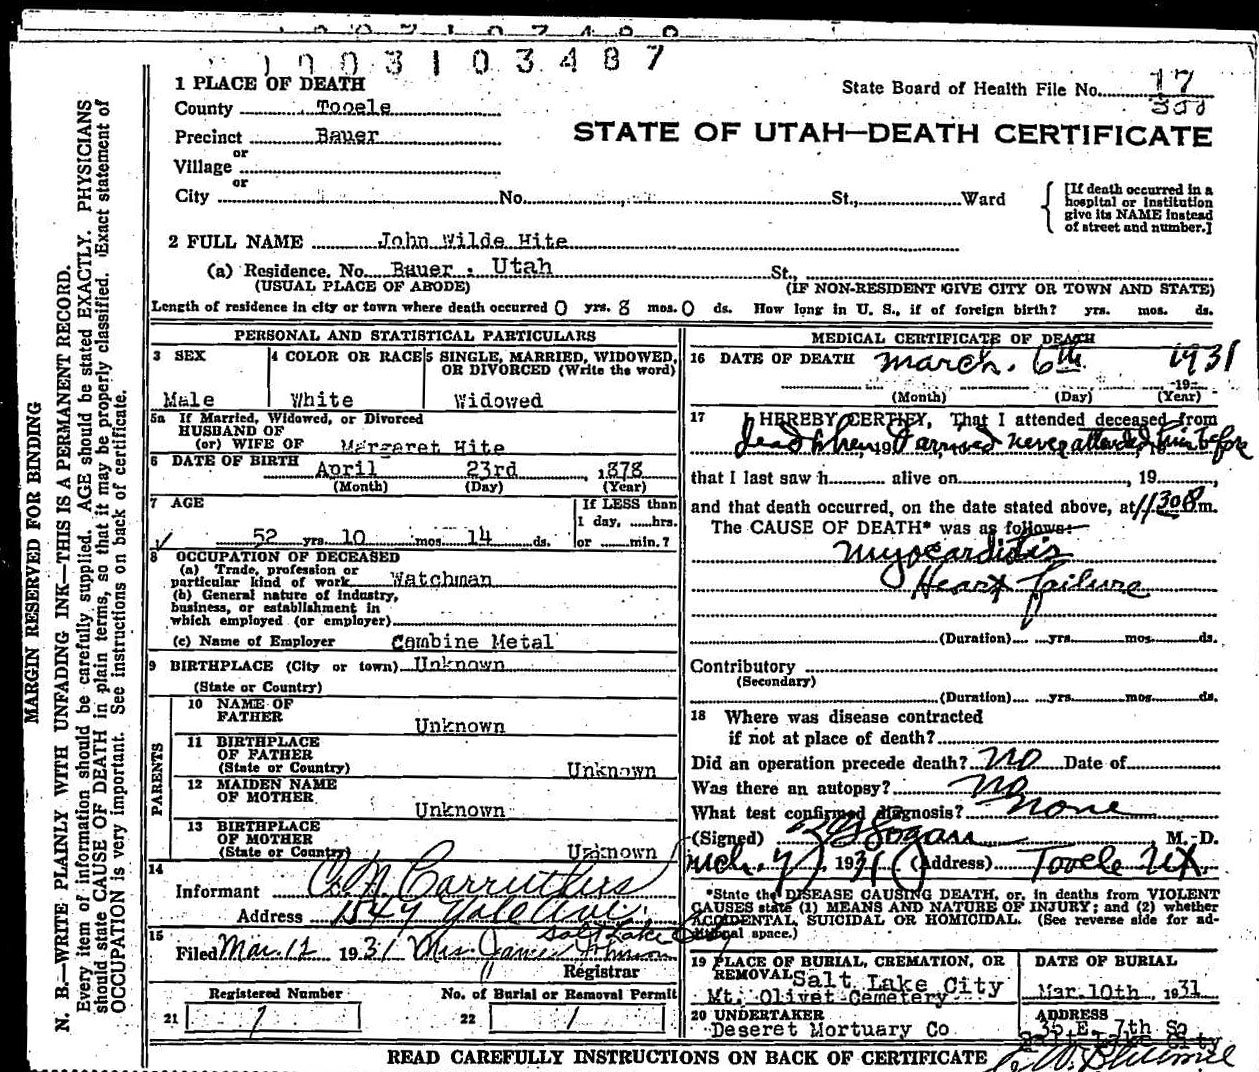 1003103487
1 PLACE OF DEATH
State Board of Health File No. 17
300
County Tooele
STATE OF UTAH—DEATH CERTIFICATE
Precinct Bauer
or
Village
or
City No. St., Ward
[If death occurred in a
hospital or institution
give its NAME instead
of street and number.]
2 FULL NAME John Wilde Hite
(a) Residence. No. Bauer, Utah St.,
(USUAL PLACE OF ABODE) (IF NON-RESIDENT GIVE CITY OR TOWN AND STATE)
Length of residence in city or town where death occurred 0 yrs. 8 mos. 0 ds. How long in U. S., if of foreign birth? yrs. mos. ds.
PERSONAL AND STATISTICAL PARTICULARS
3 SEX
Male
4 COLOR OR RACE
White
5 SINGLE, MARRIED, WIDOWED,
OR DIVORCED (Write the word)
Widowed
5a If Married, Widowed, or Divorced
HUSBAND OF
(or) WIFE OF Margaret Hite
6 DATE OF BIRTH April 23rd , 1878
(Month) (Day) (Year)
7 AGE
52 yrs. 10 mos. 14 ds.
If LESS than
1 day, hrs.
or min.?
8 OCCUPATION OF DECEASED
(a) Trade, profession or
particular kind of work Watchman
(b) General nature of industry,
business, or establishment in
which employed (or employer)
(c) Name of Employer Combine Metal
9 BIRTHPLACE (City or town) Unknown
(State or Country)
PARENTS
10 NAME OF
FATHER Unknown
11 BIRTHPLACE
OF FATHER
(State or Country) Unknown
12 MAIDEN NAME
OF MOTHER Unknown
13 BIRTHPLACE
OF MOTHER
(State or Country) Unknown
14
Informant C. N. Carruthers
Address 1549 Yale Ave.
Salt Lake City
15
Filed Mar. 12 1931 Mrs. James Johnson
Registrar
Registered Number
21 1
No. of Burial or Removal Permit
22 1
MEDICAL CERTIFICATE OF DEATH
16 DATE OF DEATH March. 6th. 1931
19
(Month) (Day) (Year)
17 I HEREBY CERTIFY, That I attended deceased from
dead when I arrived never attended him before
that I last saw h alive on , 19 ,
and that death occurred, on the date stated above, at 11:30 m.
The CAUSE OF DEATH* was as follows:
Myocarditis
Heart failure
(Duration) yrs. mos. ds.
Contributory
(Secondary)
(Duration) yrs. mos. ds.
18 Where was disease contracted
if not at place of death?
Did an operation precede death? no Date of
Was there an autopsy? no
What test confirmed diagnosis? none
(Signed) M.-D.
Mch. 7, 1931 (Address) Tooele Ut.
*State the DISEASE CAUSING DEATH, or, in deaths from VIOLENT
CAUSES state (1) MEANS AND NATURE OF INJURY; and (2) whether
ACCIDENTAL, SUICIDAL OR HOMICIDAL. (See reverse side for ad-
ditional space.)
19 PLACE OF BURIAL, CREMATION, OR
REMOVAL Salt Lake City
Mt. Olivet Cemetery
DATE OF BURIAL
Mar. 10th, 1931
20 UNDERTAKER
Deseret Mortuary Co
ADDRESS
35 E. 7th So
Salt Lake City
READ CAREFULLY INSTRUCTIONS ON BACK OF CERTIFICATE
MARGIN RESERVED FOR BINDING
N. B.—WRITE PLAINLY WITH UNFADING INK—THIS IS A PERMANENT RECORD.
Every item of information should be carefully supplied. AGE should be stated EXACTLY. PHYSICIANS
should state CAUSE OF DEATH in plain terms, so that it may be properly classified. Exact statement of
OCCUPATION is very important. See instructions on back of certificate.